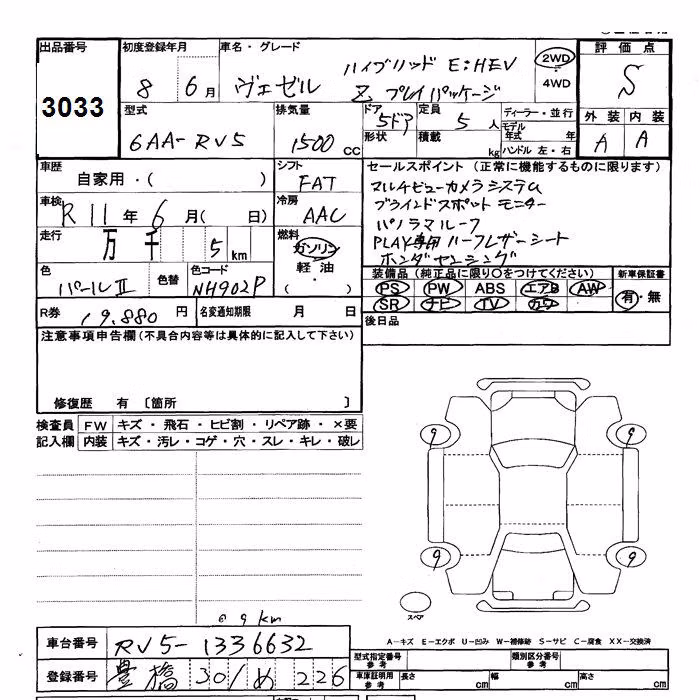 出品番号 初度登録年月 車名・グレード 評価点
3033 8 6月 ヴェゼル ハイブリッド E:HEV 2WD S
Z プレイパッケージ 4WD
型式 排気量 ドア 定員 ディーラー・並行 外装 内装
6AA-RV5 1500cc 5ドア 5人 モデル年式 年 A A
形状 積載 kg ハンドル 左・右
車歴 シフト セールスポイント (正常に機能するものに限ります)
自家用・( ) FAT マルチビューカメラシステム
車検 冷房 ブラインドスポットモニター
R11年6月( 日) AAC パノラマルーフ
走行 燃料 PLAY専用ハーフレザーシート
万 千 5km ガソリン ホンダセンシング
軽油
( ・ )
色 色替 色コード 装備品 (純正品に限り〇をつけてください) 新車保証書
パールⅡ NH902P PS PW ABS エアB AW 有・無
SR ナビ TV カワ
R券 19.880円 名変通知期限 月 日 後日品
注意事項申告欄(不具合内容等は具体的に記入して下さい)
修復歴 有 〔箇所 〕
検査員 FW キズ・飛石・ヒビ割・リペア跡・×要
記入欄 内装 キズ・汚レ・コゲ・穴・スレ・キレ・破レ
9 9
9 9
スペア
@ 9km
A-キズ E-エクボ U-凹み W-補修跡 S-サビ C-腐食 XX-交換済
車台番号 RV5-1336632 型式指定番号 参考 類別区分番号 参考
登録番号 豊橋 301 め 226 車庫証明用 参考 長さ cm 幅 cm 高さ cm